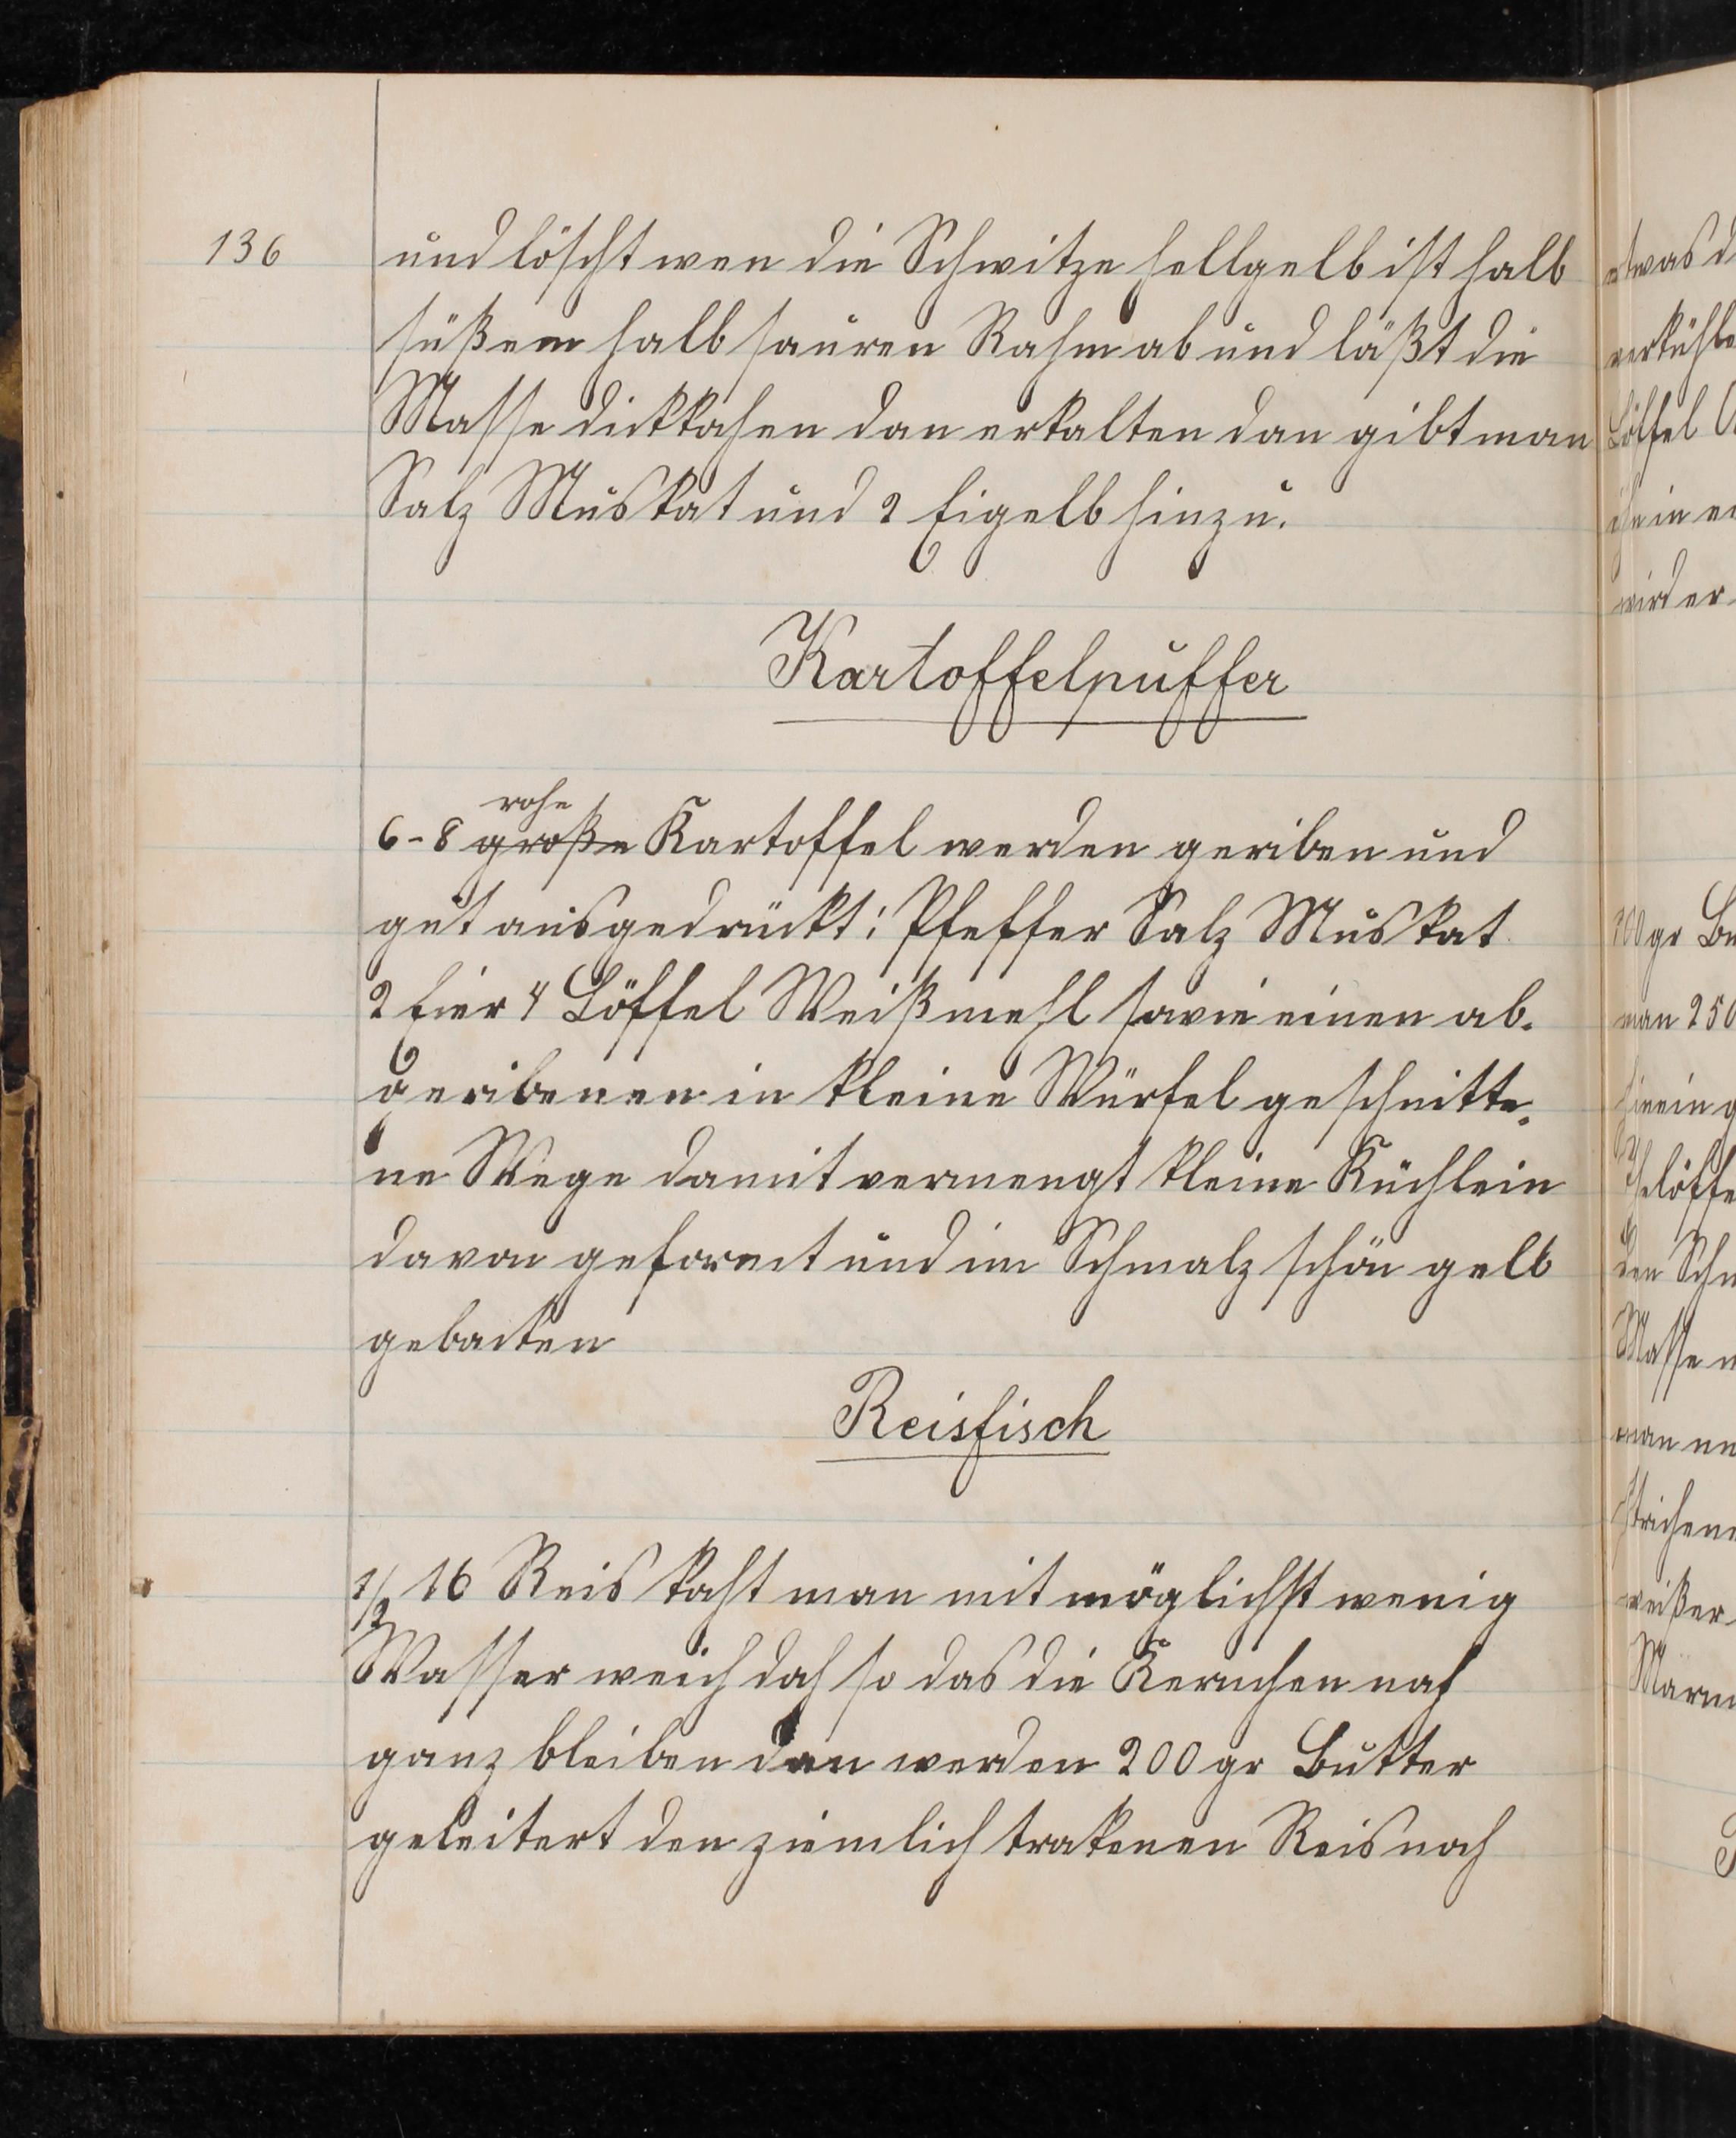 136
und löscht wen die Schwitze hellgelb ist halb
süßem halb sauren Rahm ab und läßt die
Masse dickkochen dan erkalten dan gibt man
Salz Muskat und 2 Eigelb hinzu.
Kartoffelpuffer
rohe
6-8 große Kartoffel werden geriben und
gut ausgedrückt; Pfeffer Salz Muskat
2 Eier 4 Löffel Weißmehl sowie einen ab-
geribenen in kleine Würfel geschnitte-
ne Wege damit vermengt kleine Küchlein
davon geformt und im Schmalz schön gelb
gebacken
Reisfisch
1/2 lb Reis kocht man mit möglichst wenig
Wasser weich doch so das die Kernchen noch
ganz bleiben dan werden 200 gr Butter
geleitert den ziemlich trokenen Reis noch
etwas
verkühle
Löffel
wird er
200 gr
man 250
hinein
den
Masse
man
weißer